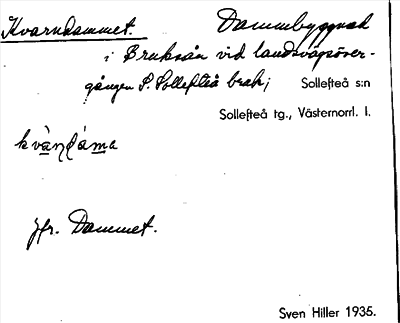 Kvarndammet. Dammbyggnad
i Bruksån vid landsvägsöver-
gången S. Sollefteå bruk; Sollefteå s:n
Sollefteå tg., Västernorrl. l.
kvàṇdáma
Jfr. Dammet.
Sven Hiller 1935.